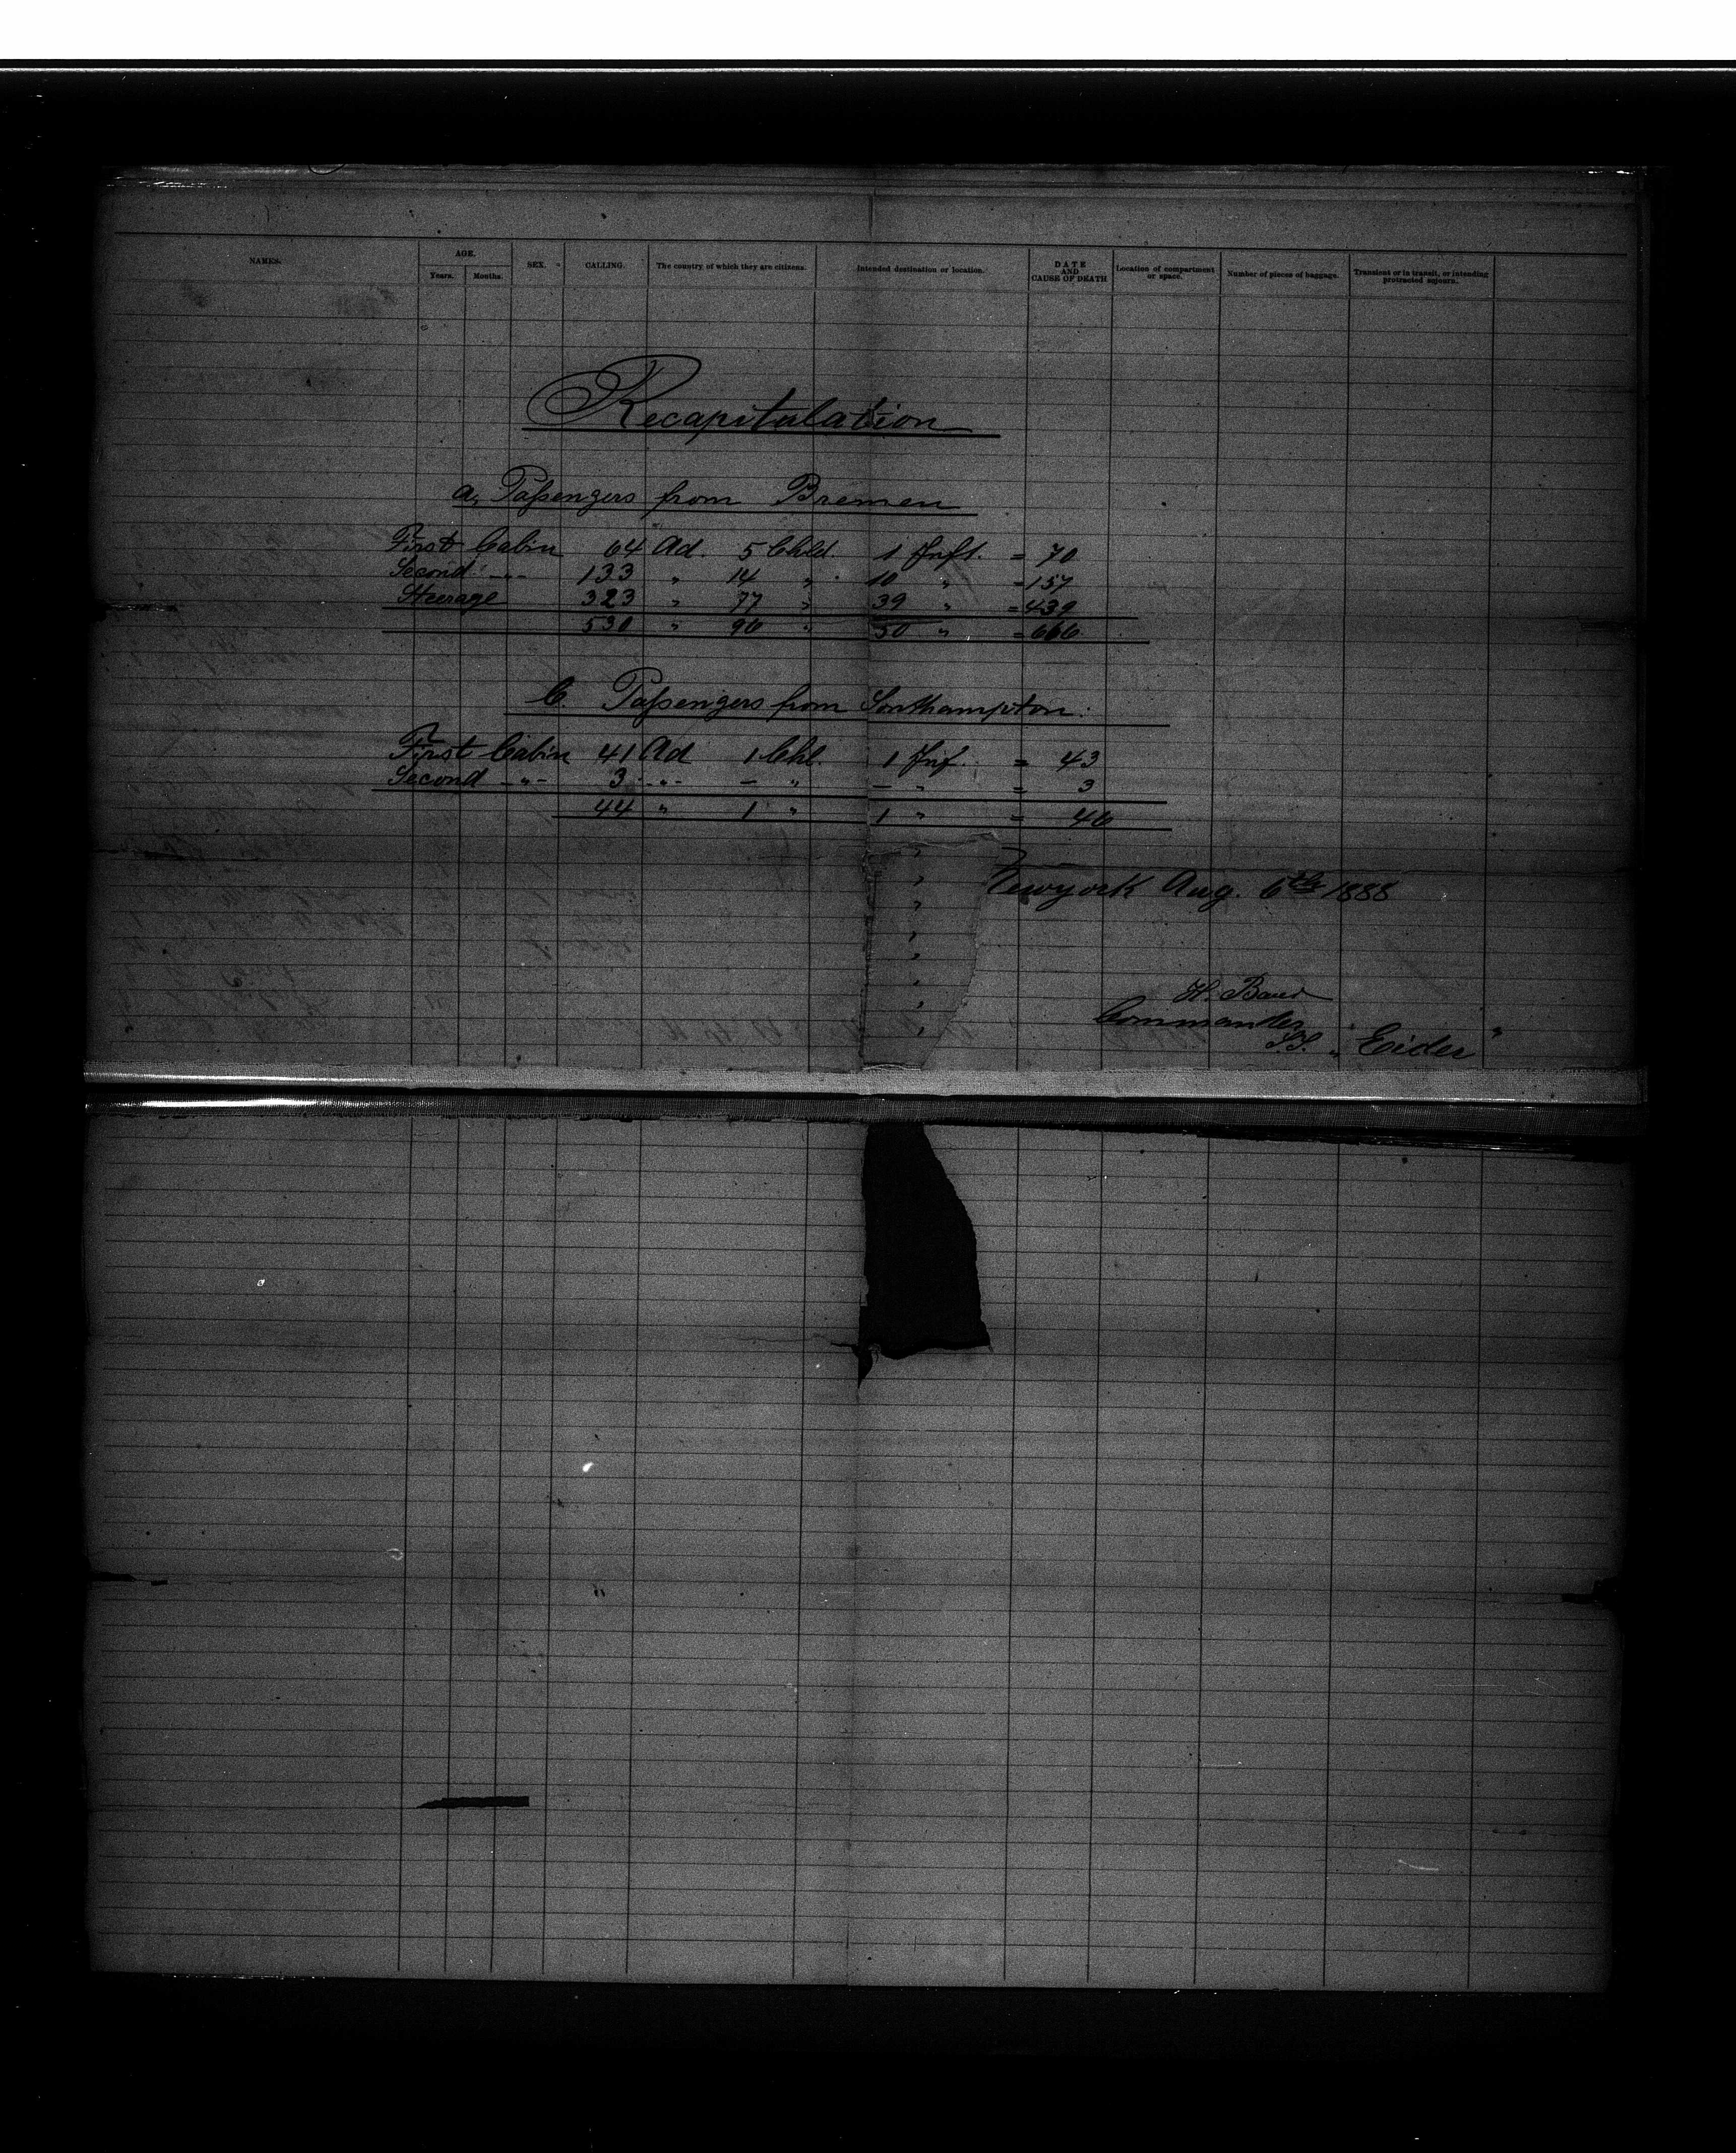 NAMES. AGE. SEX. CALLING. The country of which they are citizens. Intended destination or location. DATE AND CAUSE OF DEATH Location of compartment or space. Number of pieces of baggage. Transient or in transit, or intending protracted sojourn.
Years. Months.
Recapitulation
a, Paſsengers from Bremen
First Cabin 64 Ad. 5 Child. 1 Inft. = 70
Second -"- 133 " 14 " 10 " = 157
Steerage 323 " 77 " 39 " = 439
530 " 96 " 50 " = 666
b. Paſsengers from Southampton:
First Cabin 41 Ad 1 Chl. 1 Inf. = 43
Second -"- 3 -"- - " - " = 3
44 " 1 " 1 " = 46
Newyork Aug. 6th 1888
H. Baur
Commander
S.S. "Eider"